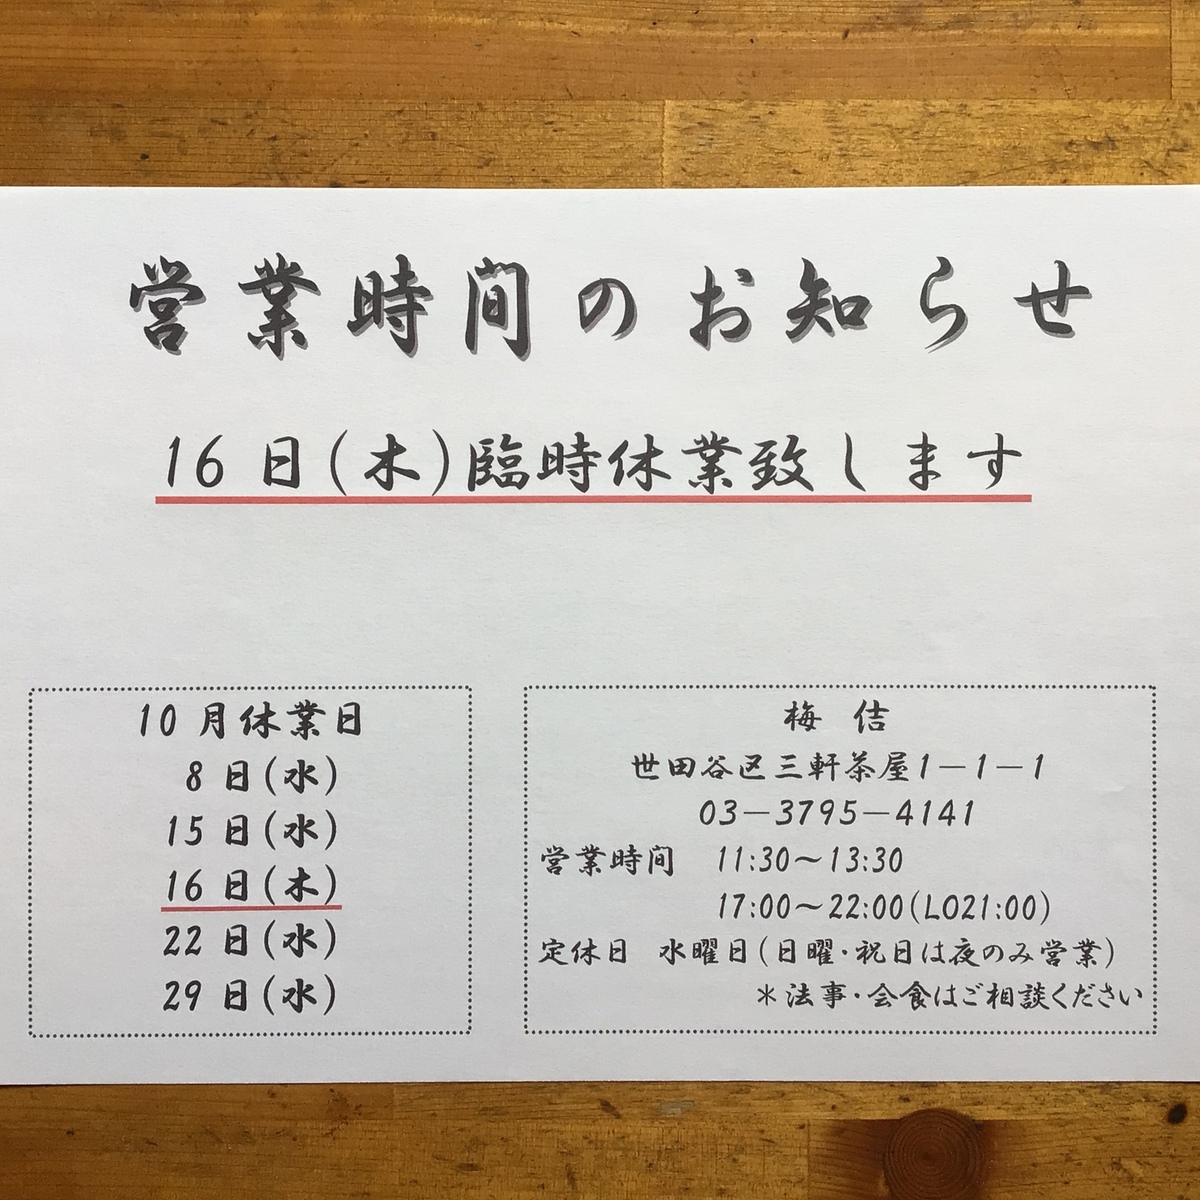 営業時間のお知らせ
16日(木)臨時休業致します
10月休業日
8日(水)
15日(水)
16日(木)
22日(水)
29日(水)
梅 佶
世田谷区三軒茶屋1－1－1
03－3795－4141
営業時間 11:30～13:30
17:00～22:00(LO21:00)
定休日 水曜日(日曜・祝日は夜のみ営業)
＊法事・会食はご相談ください